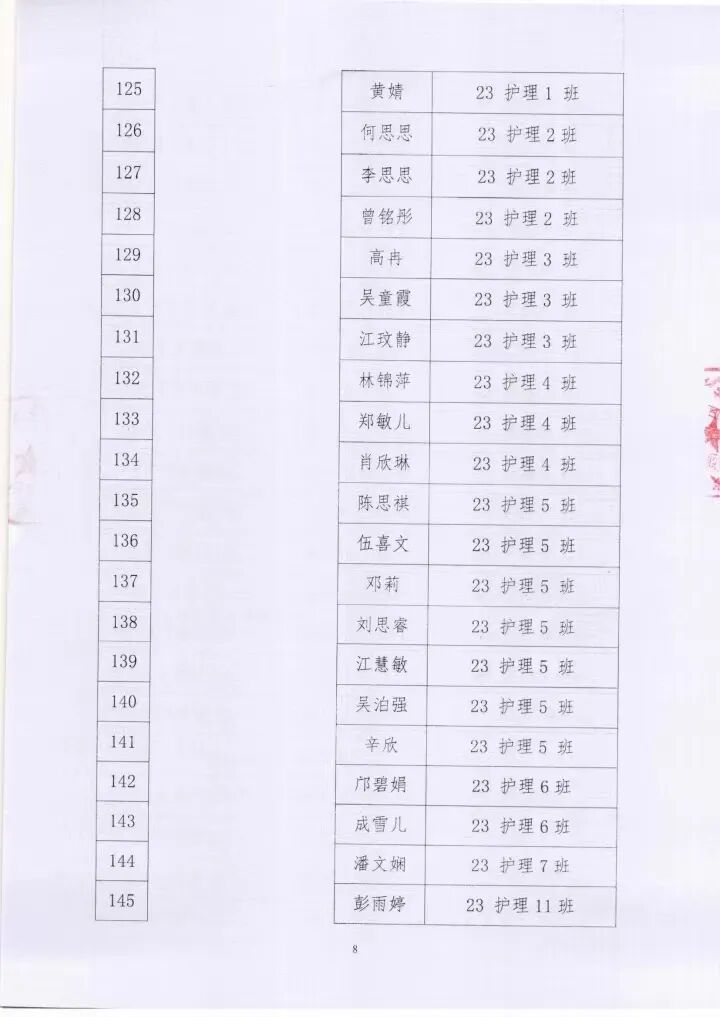 125 黄婧 23 护理1 班
126 何思思 23 护理2 班
127 李思思 23 护理2 班
128 曾铭彤 23 护理2 班
129 高冉 23 护理3 班
130 吴童霞 23 护理3 班
131 江玟静 23 护理3 班
132 林锦萍 23 护理4 班
133 郑敏儿 23 护理4 班
134 肖欣琳 23 护理4 班
135 陈思祺 23 护理5 班
136 伍喜文 23 护理5 班
137 邓莉 23 护理5 班
138 刘思睿 23 护理5 班
139 江慧敏 23 护理5 班
140 吴泊强 23 护理5 班
141 辛欣 23 护理5 班
142 邝碧娟 23 护理6 班
143 成雪儿 23 护理6 班
144 潘文娴 23 护理7 班
145 彭雨婷 23 护理11 班
8